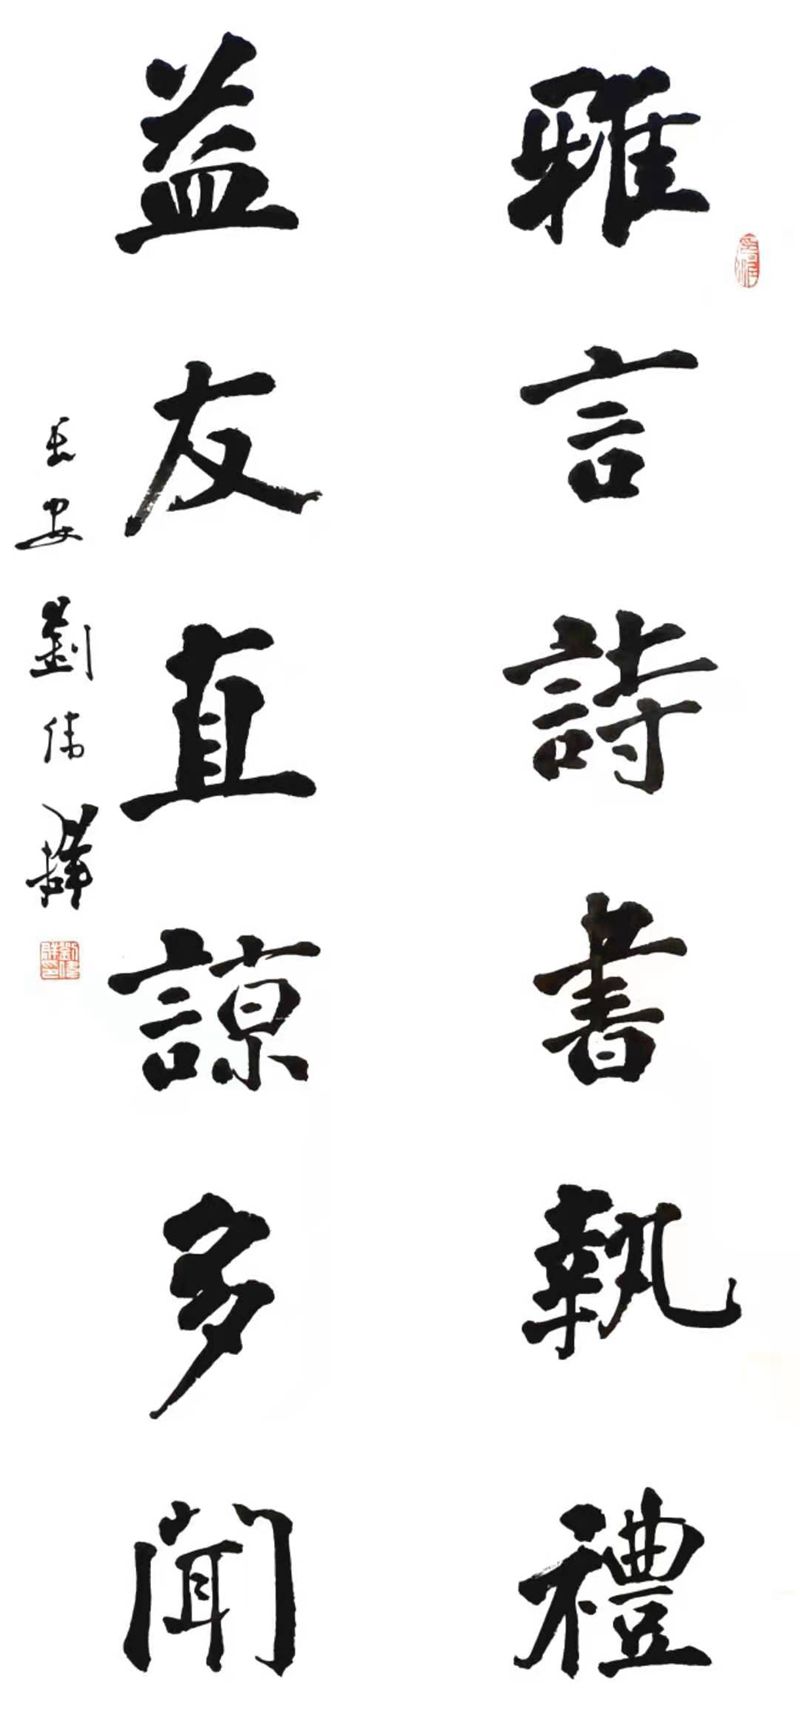 雅言詩書執禮
益友直諒多聞
長安劉偉